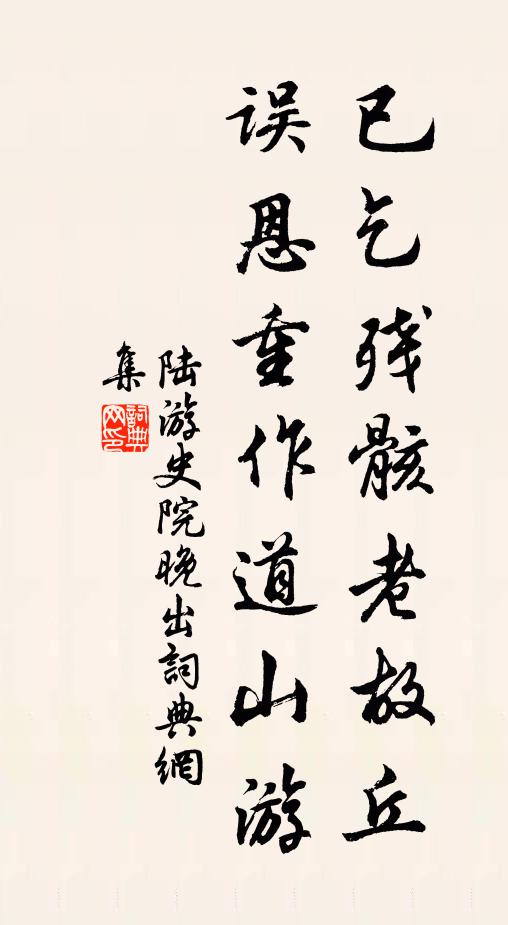 已乞残骸老故丘
误恩重作道山游
陆游史院晚出詞典網
集
詞典
网印